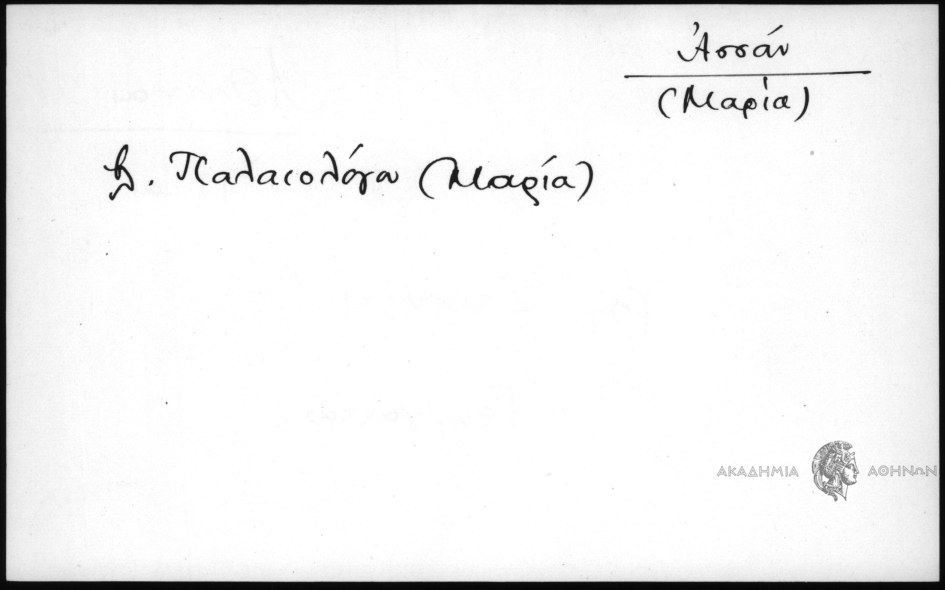 Ἀσσάν
(Μαρία)
βλ. Παλαιολόγου (Μαρία)
ΑΚΑΔΗΜΙΑ ΑΘΗΝΩΝ